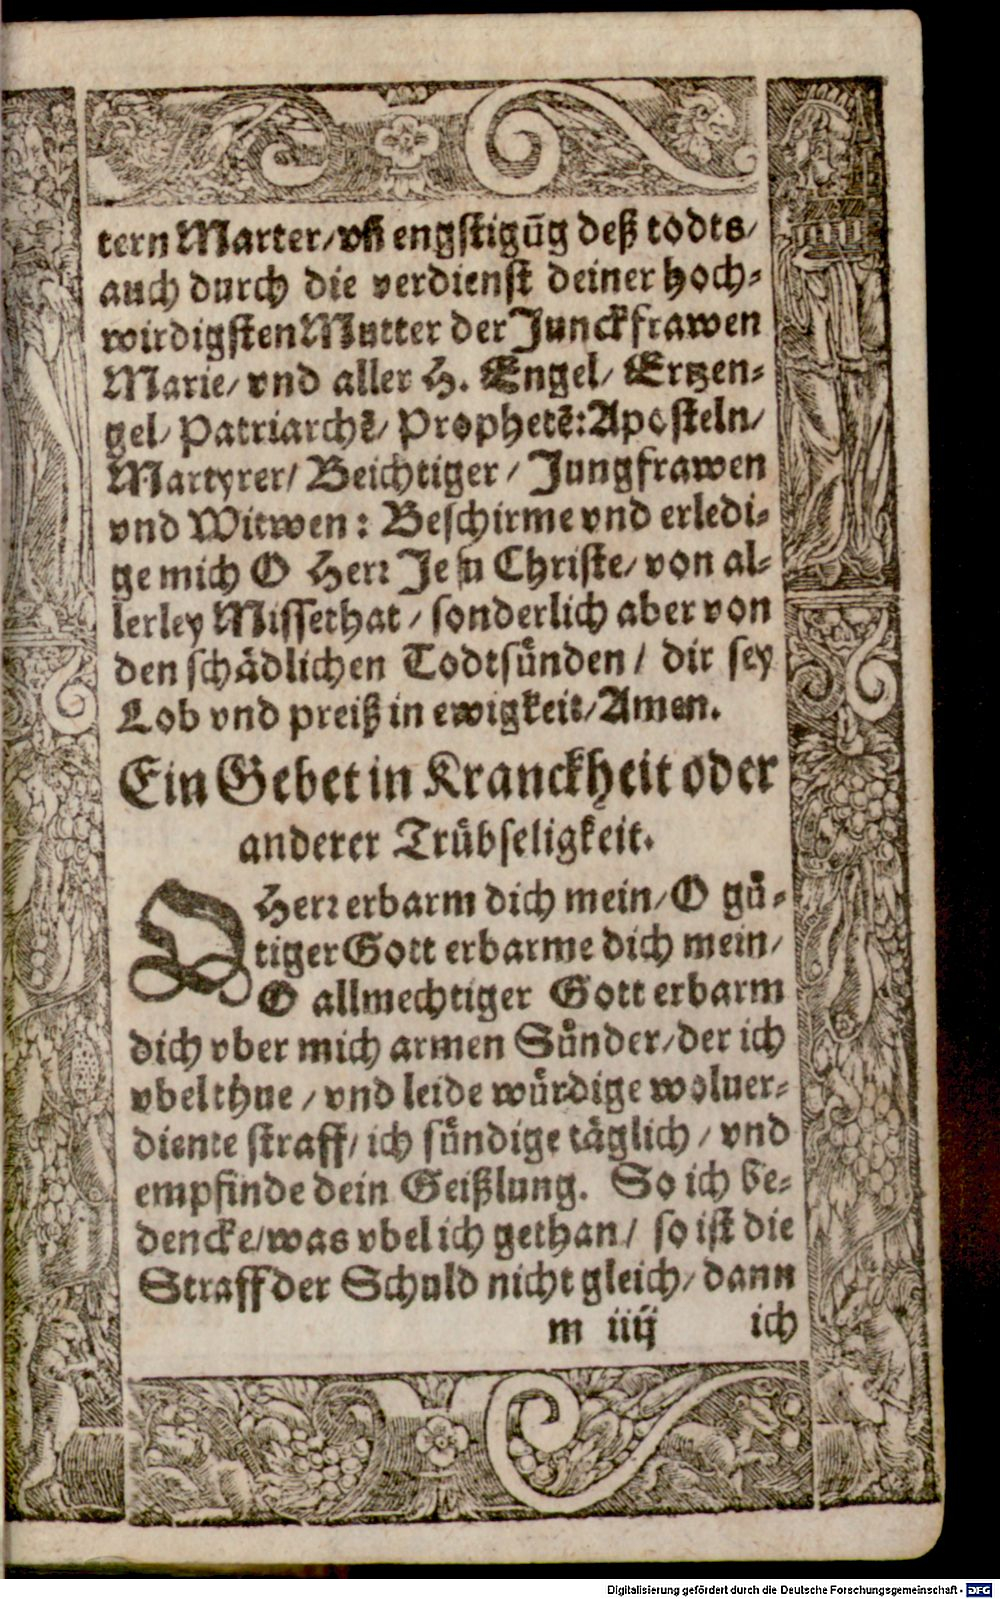 tern Marter/ vñ engstigūg deß todts/
auch durch die verdienst deiner hoch-
wirdigsten Mutter der Junckfrawen
Marie/ vnd aller H. Engel/ Ertzen-
gel/ Patriarchē/ Prophetē: Aposteln/
Martyrer/ Beichtiger/ Jungfrawen
vnd Witwen: Beschirme vnd erledi-
ge mich O Herr Jesu Christe/ von al-
lerley Missethat/ sonderlich aber von
den schädlichen Todtsünden/ dir sey
Lob vnd preiß in ewigkeit/ Amen.
Ein Gebet in Kranckheit oder
anderer Trübseligkeit.
O Herr erbarm dich mein/ O gü-
tiger Gott erbarme dich mein/
O allmechtiger Gott erbarm
dich vber mich armen Sünder/ der ich
vbel thue/ vnd leide würdige woluer-
diente straff/ ich sündige täglich/ vnd
empfinde dein Geißlung. So ich be-
dencke/ was vbel ich gethan/ so ist die
Straff der Schuld nicht gleich/ dann
m iiij ich
Digitalisierung gefördert durch die Deutsche Forschungsgemeinschaft - DFG